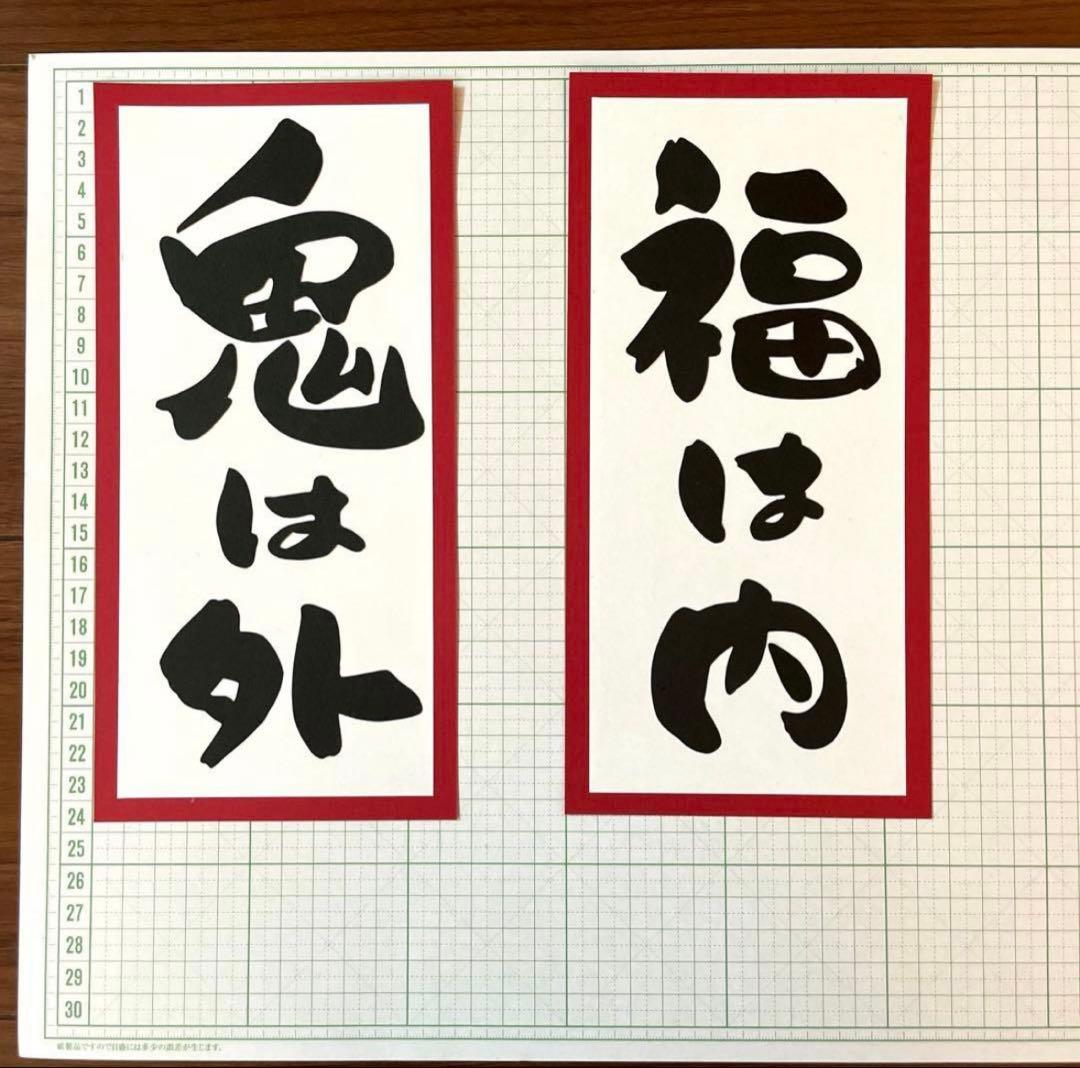 鬼は外
福は内
1
2
3
4
5
6
7
8
9
10
11
12
13
14
15
16
17
18
19
20
21
22
23
24
25
26
27
28
29
30
紙製品ですので目盛には多少の誤差が生じます。